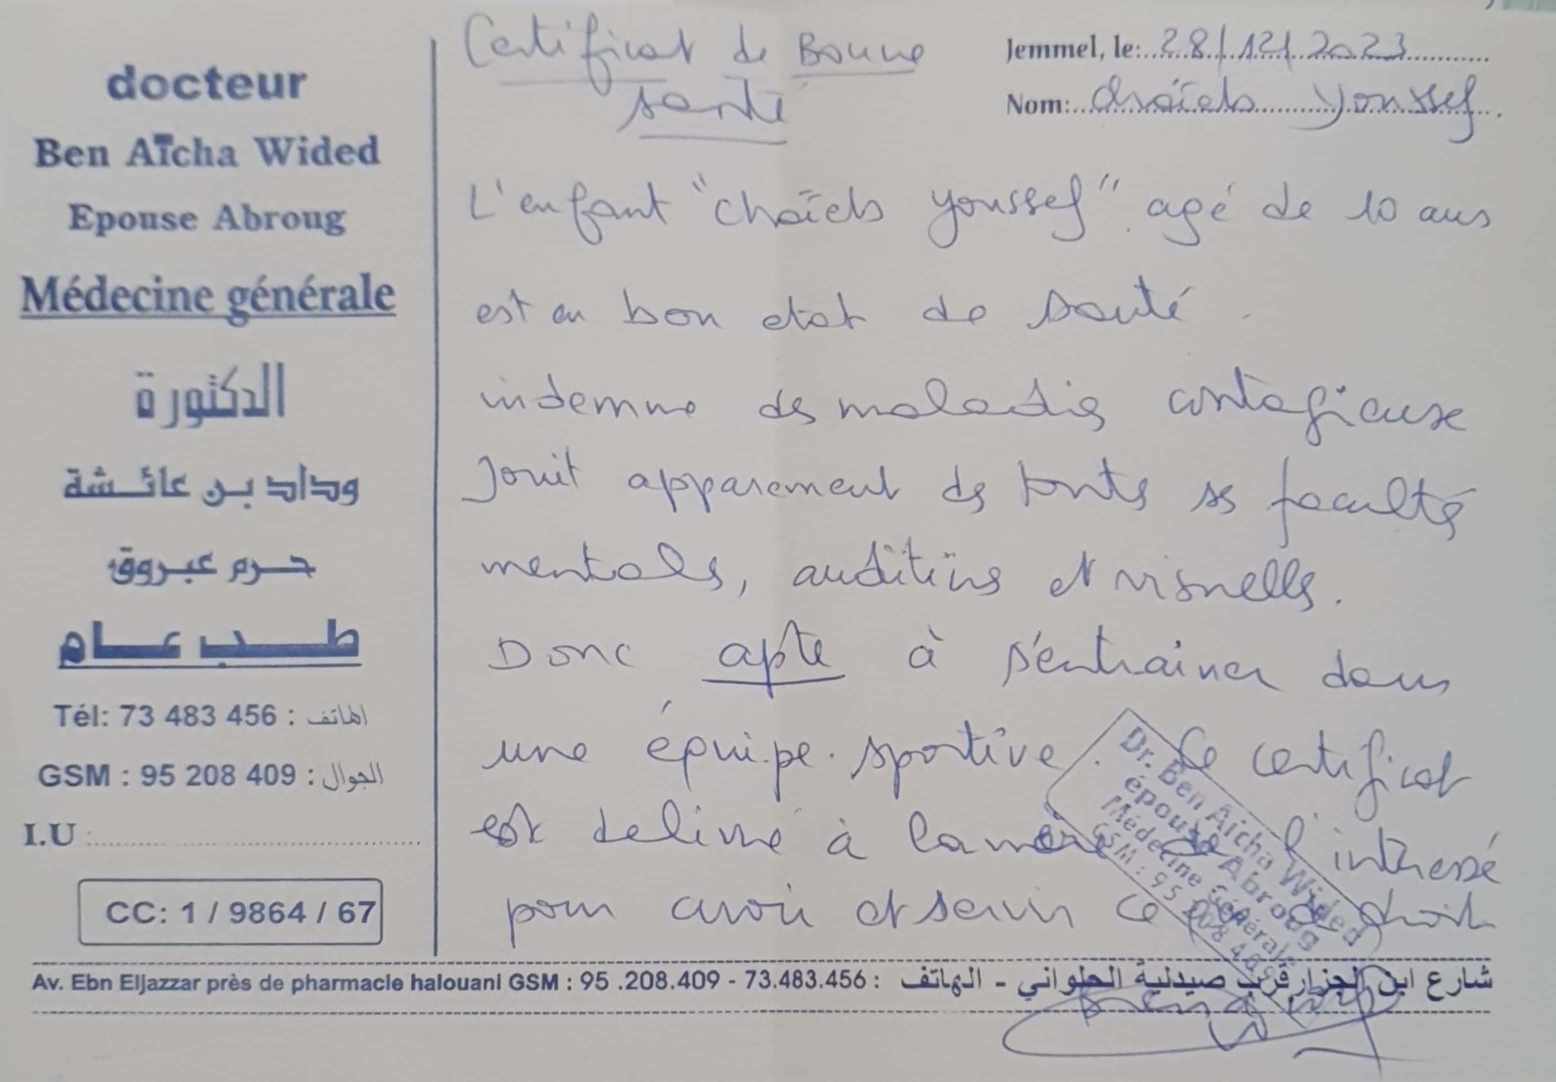 docteur
Ben Aïcha Wided
Epouse Abroug
Médecine générale
الدكتورة
وداد بن عائشة
حرم عبروق
طب عام
Tél: 73 483 456 : الهاتف
GSM : 95 208 409 : الجوال
I.U :
CC: 1 / 9864 / 67
Certificat de Bonne
santé
Jemmel, le: 28/12/2023
Nom: chaieb youssef
L'enfant "chaieb youssef" agé de 10 ans
est en bon etat de santé.
indemne de maladies contagieuse
Jouit apparement de touts ses facultés
mentals, auditivs et visuells.
Donc apte à s'entrainer dans
une équipe sportive. Ce certificat
est delivré à la mère de l'interessé
pour avoir et servir ce que de droit
Dr. Ben Aïcha Wided
épouse Abroug
Médecine Générale
GSM : 95 208 409
Av. Ebn Eljazzar près de pharmacie halouani GSM : 95 .208.409 - 73.483.456 : شارع ابن الجزار قرب صيدلية الحلواني - الهاتف